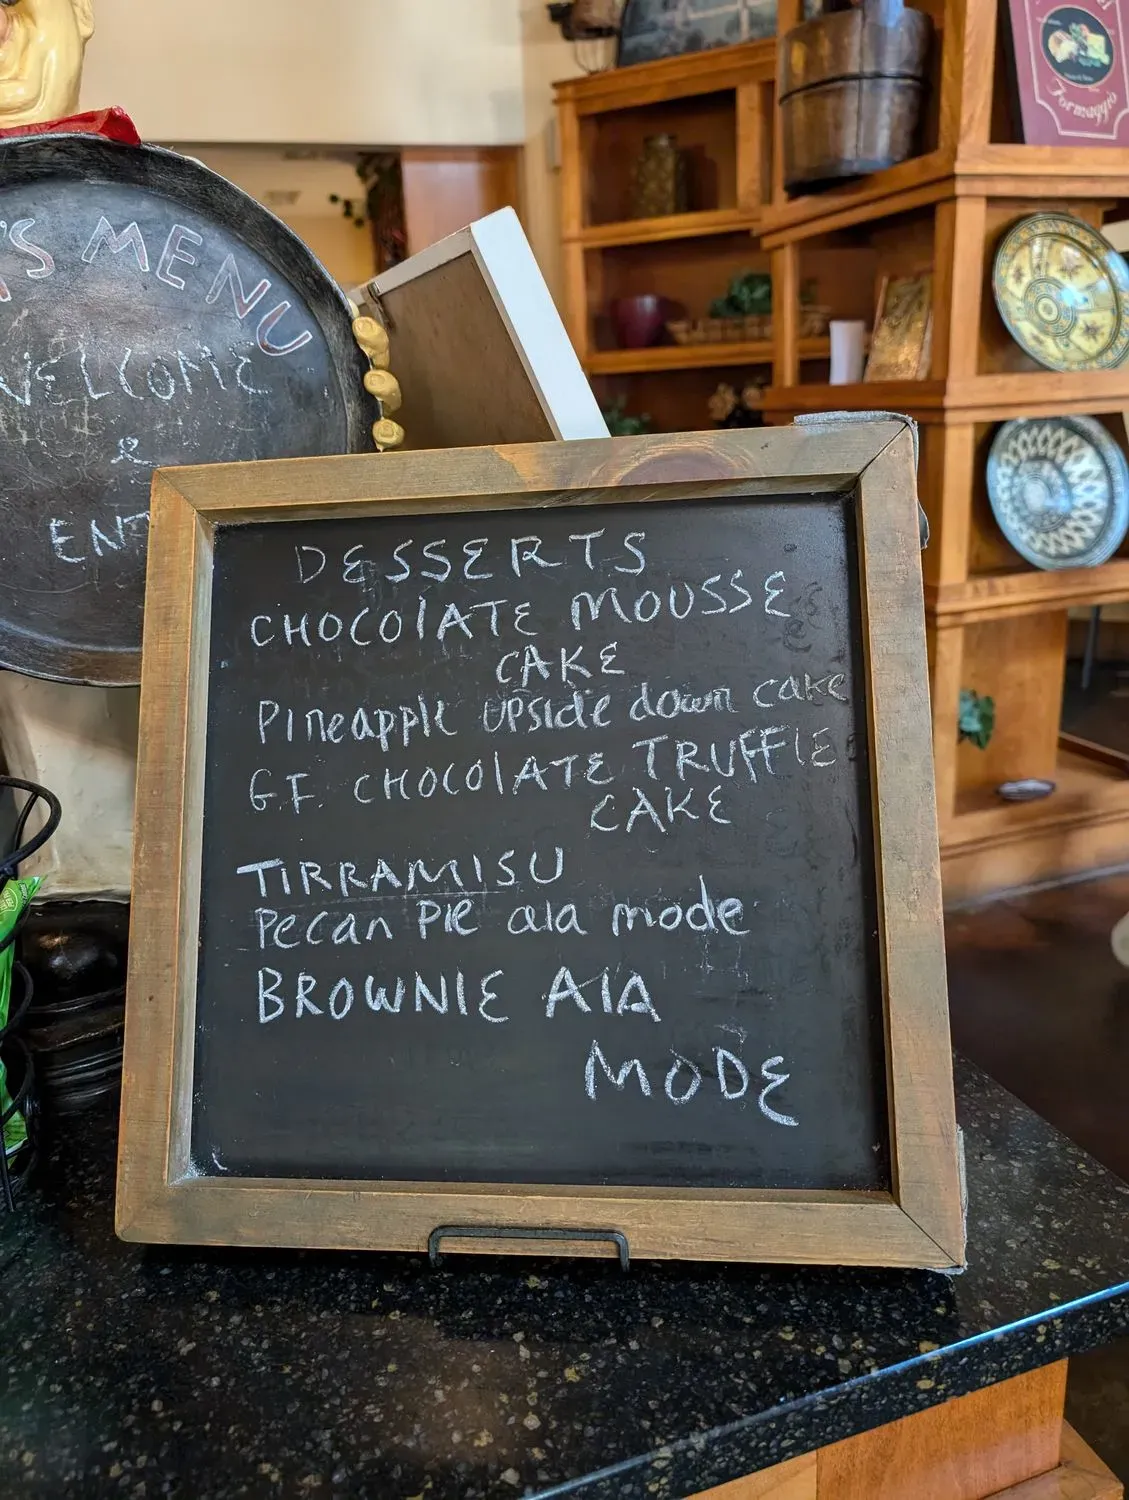 'S MENU
WELCOME
&
DESSERTS
CHOCOLATE MOUSSE
CAKE
Pineapple upside down cake
G.F. CHOCOLATE TRUFFLE
CAKE
TIRRAMISU
Pecan Pie ala mode
BROWNIE ALA
MODE
Formaggio